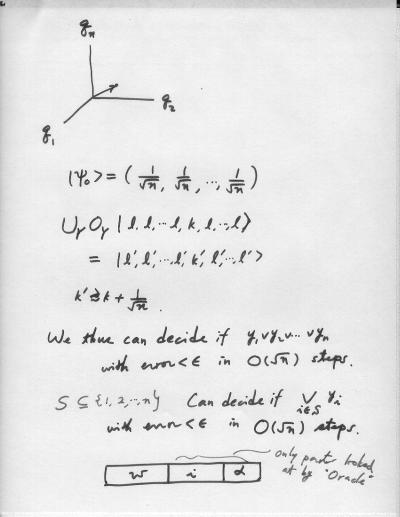 g_n
r
g_2
g_1
|Ψ_0> = ( 1/√n, 1/√n, ..., 1/√n )
U_γ O_γ | l, l, ... l, k, l, ..., l >
= | l', l', ... l', k', l', ... l' >
k' ≈ k + 1/√n .
We thus can decide if y_1 ∨ y_2 ∨ ... ∨ y_n
with error < ϵ in O(√n) steps.
S ⊆ {1, 2, ..., n} Can decide if ∨_{i∈S} y_i
with error < ϵ in O(√n) steps.
only part looked
at by "Oracle"
w i α